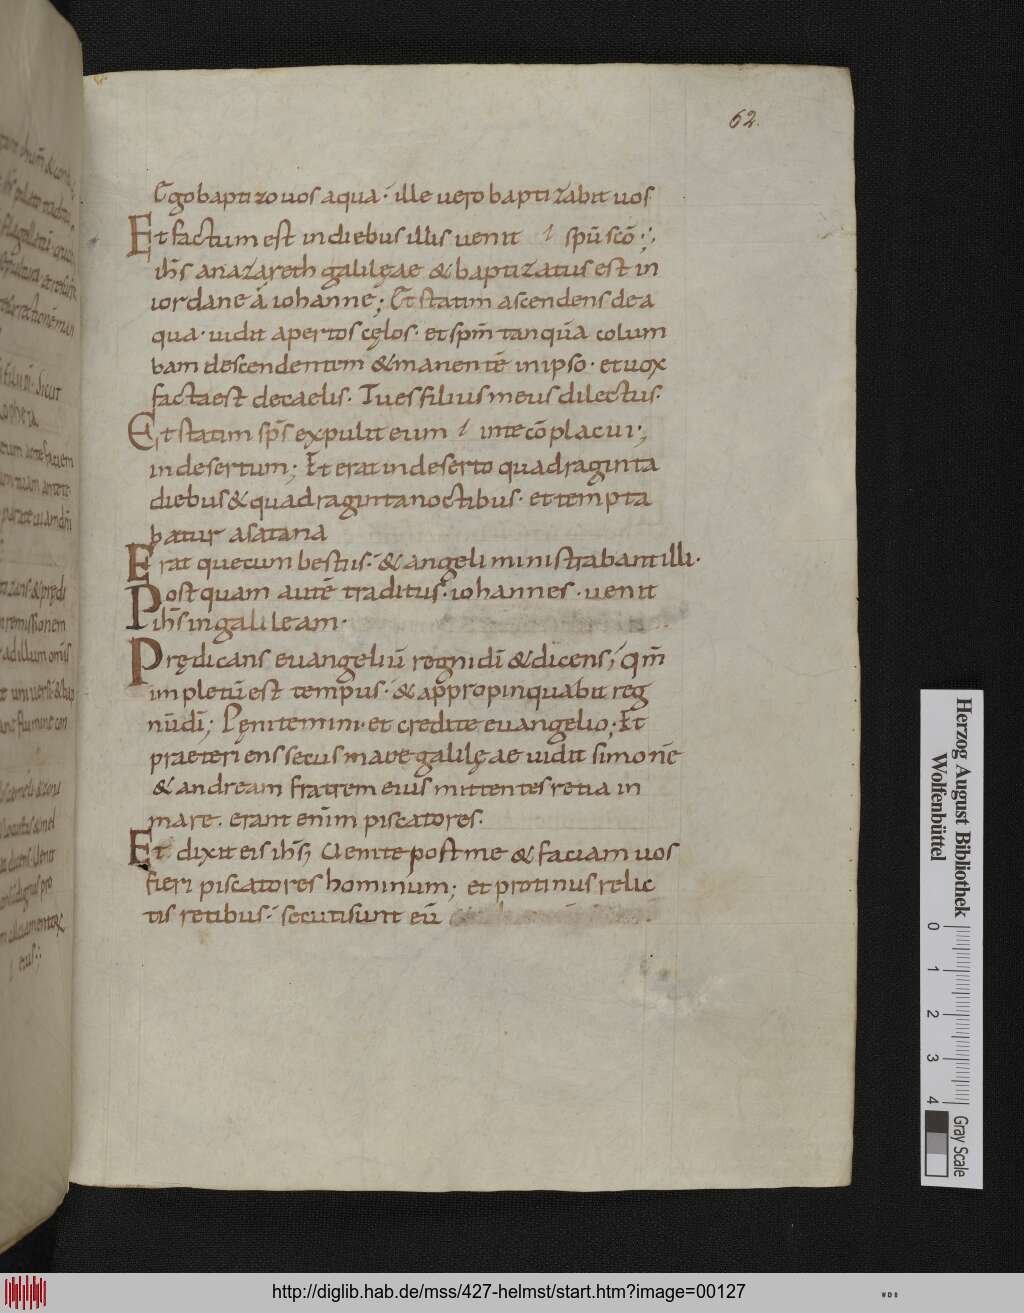 62.
Ego baptizo uos aqua· ille uero baptizabit uos
Et factum est in diebus illis uenit / spū scō·;
ih̄s a nazareth galilęae & baptizatus est in
iordane á iohanne; Et statim ascendens de a
qua· uidit apertos cęlos· et spm̄ tanquā colum
bam descendentem & manentē in ipso· et uox
facta est de caelis· Tu es filius meus dilectus·
Et statim sps̄ expulit eum / in te cōplacui;
in desertum; Et erat in deserto quadraginta
diebus & quadraginta noctibus· et tempta
batur a satana
Erat que cum bestiis· & angeli ministrabant illi·
Postquam autē traditus· iohannes· uenit
ih̄s in galileam·
Prędicans euangeliū regni dī & dicens; qm̄
impletū est tempus· & appropinquabit reg
nū dī; Pęnitemini· et credite euangelio; Et
praeteriens secus mare galilęae uidit simonē
& andream fratrem eius mittentes retia in
mare. erant enīm piscatores·
Et dixit eis ih̄s; Uenite post me & faciam uos
fieri piscatores hominum; et protinus relic
tis retibus· secuti sunt eū
Herzog August Bibliothek
Wolfenbüttel
0 1 2 3 4
Gray Scale
http://diglib.hab.de/mss/427-helmst/start.htm?image=00127